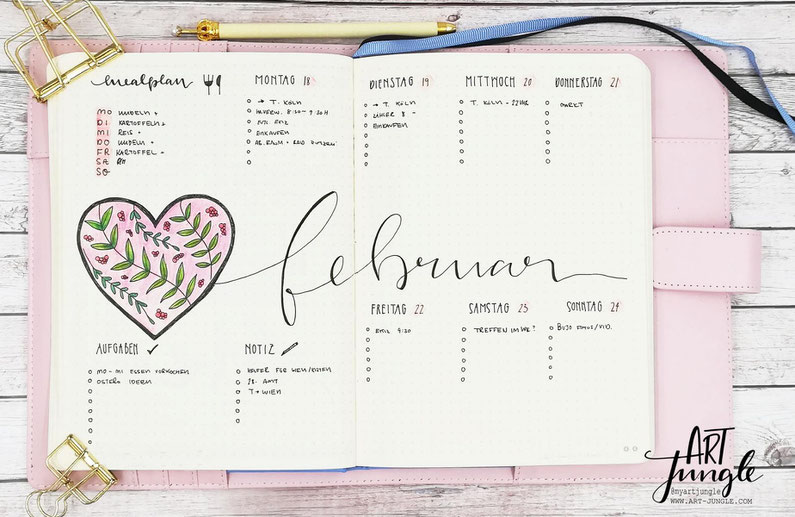 mealplan
MO NUDELN +
DI KARTOFFELN +
MI REIS +
DO NUDELN +
FR KARTOFFEL +
SA
SO
MONTAG 18
→ T. KÖLN
8:30 - 9:30H
EINKAUFEN
DIENSTAG 19
→ T. KÖLN
EINKAUFEN
MITTWOCH 20
T. KÖLN
DONNERSTAG 21
MARKT
februar
FREITAG 22
9:30
SAMSTAG 23
TREFFEN IM WE?
SONNTAG 24
BUJO
AUFGABEN
MO - MI ESSEN VORKOCHEN
OSTERN IDEEN
NOTIZ
28. AMT
T → WIEN
ART
jungle
@myartjungle
WWW.ART-JUNGLE.COM